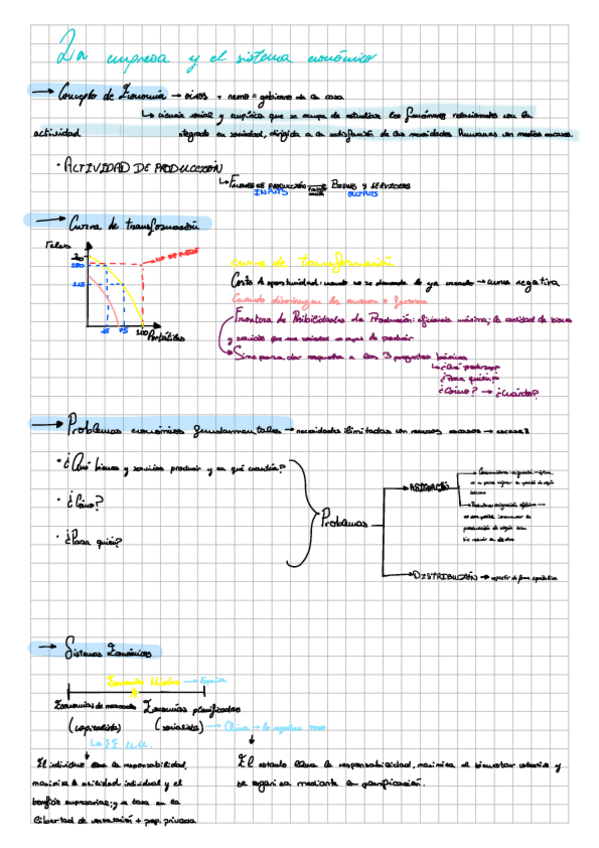 La empresa y el sistema económico
→ Concepto de Economía → oikos + nemo = gobierno de la casa
↳ ciencia social y empírica que se ocupa de estudiar los fenómenos relacionados con la
actividad integrado en sociedad, dirigida a la satisfacción de las necesidades humanas con medios escasos.
· ACTIVIDAD DE PRODUCCIÓN
↳ FACTORES DE PRODUCCIÓN → BIENES Y SERVICIOS
INPUTS OUTPUTS
→ Curva de transformación
Telas
curva de transformación
Coste de oportunidad: cuando no se demanda lo ya creado → curva negativa
Cuando disminuyen los recursos o factores
Frontera de Posibilidades de Producción: eficiencia máxima; la cantidad de bienes
y servicios que una sociedad es capaz de producir
Sirve para dar respuesta a las 3 preguntas básicas
↳ ¿Qué producir?
¿Para quién?
¿Cómo? → ¿Cuánto?
25 75 100 Portátiles
→ Problemas económicos fundamentales → necesidades ilimitadas con recursos escasos → escasez
· ¿Qué bienes y servicios producir y en qué cuantía?
· ¿Cómo?
· ¿Para quién?
Problemas
→ ASIGNACIÓN
→ DISTRIBUCIÓN → repartir de forma equitativa
→ Sistemas Económicos
Economía Mixta → España
Economías de mercado Economías planificadas
(capitalista) (socialista) → China →
↳ EE.UU.
El individuo lleva la responsabilidad,
maximiza la utilidad individual y el
beneficio empresarial; y se basa en la
libertad de contratación + prop. privada
El estado lleva la responsabilidad, maximiza el bienestar colectivo y
se organiza mediante la planificación.